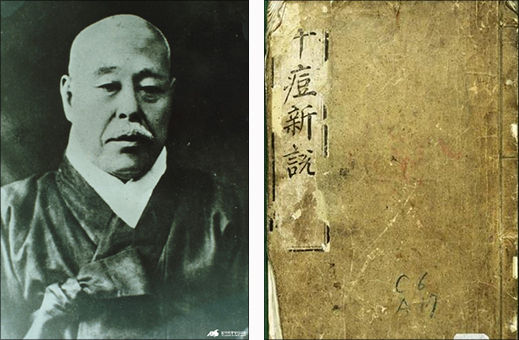 牛痘新說
C 6
A 17